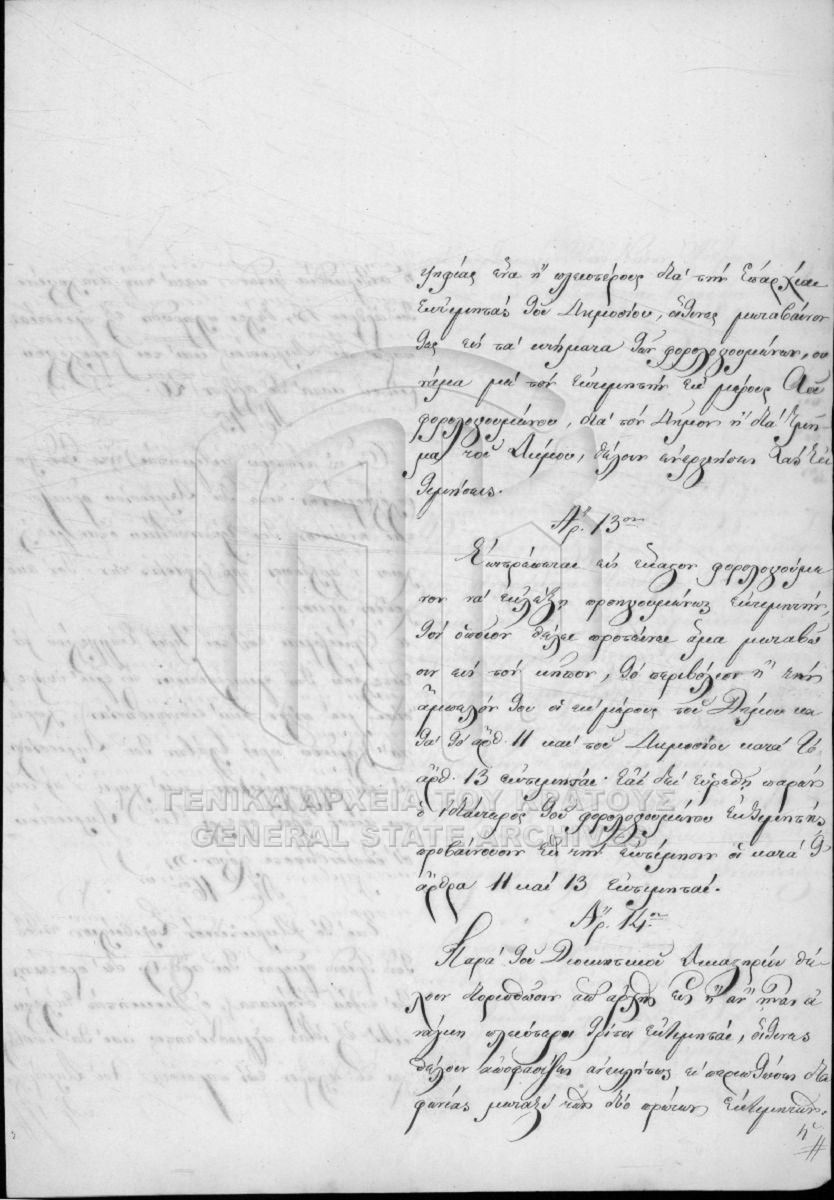 ψηφίας ἕνα ἢ πλειοτέρους διὰ τὴν Ἐπαρχίαν
Ἐκτιμητὰς τοῦ Δημοσίου, οἵτινες μεταβαίνον
τες εἰς τὰ κτήματα τῶν φορολογουμένων, συ
νάμα μὲ τὸν ἐκτιμητὴν ἐκ μέρους τοῦ
φορολογουμένου, διὰ τὸν Δῆμον ἢ διὰ τμῆ-
μα τοῦ Δήμου, θέλουν ἐνεργήσει τὰς Ἐκ
τιμήσεις.
Ἄρ. 13ον
Ἐπιτρέπεται εἰς ἕκαστον φορολογούμε
νον νὰ ἐκλέξῃ προηγουμένως ἐκτιμητὴν,
τὸν ὁποῖον θέλει προτείνει ἅμα μεταβῶ
σιν εἰς τὸν κῆπον, τὸ περιβόλιον ἢ τὴν
ἄμπελόν του οἱ ἐκ μέρους τοῦ Δήμου κα
τὰ τὸ ἄρθ. 11 καὶ τοῦ Δημοσίου κατὰ τὸ
ἄρθ. 13 ἐκτιμηταί· ἐὰν δὲν εὑρεθῇ παρὼν
ὁ ἰδιαίτερος τοῦ φορολογουμένου Ἐκτιμητὴς
προβαίνουσιν εἰς τὴν Ἐκτίμησιν οἱ κατὰ τὰ
ἄρθρα 11 καὶ 13 Ἐκτιμηταί.
Ἄρ. 14ον
Παρὰ τοῦ Διοικητικοῦ Δικαστηρίου θέ
λουν διορισθῶσιν ἀπ' ἀρχῆς εἷς ἢ ἂν ἦναι ἀ
νάγκη πλειότεροι τρίτοι Ἐκτιμηταί, οἵτινες
θέλουν ἀποφασίζει ἀνεκκλήτως ἐν περιπτώσει δια
φωνίας μεταξὺ τῶν δύο πρώτων Ἐκτιμητῶν.
ΓΕΝΙΚΑ ΑΡΧΕΙΑ ΤΟΥ ΚΡΑΤΟΥΣ
GENERAL STATE ARCHIVES